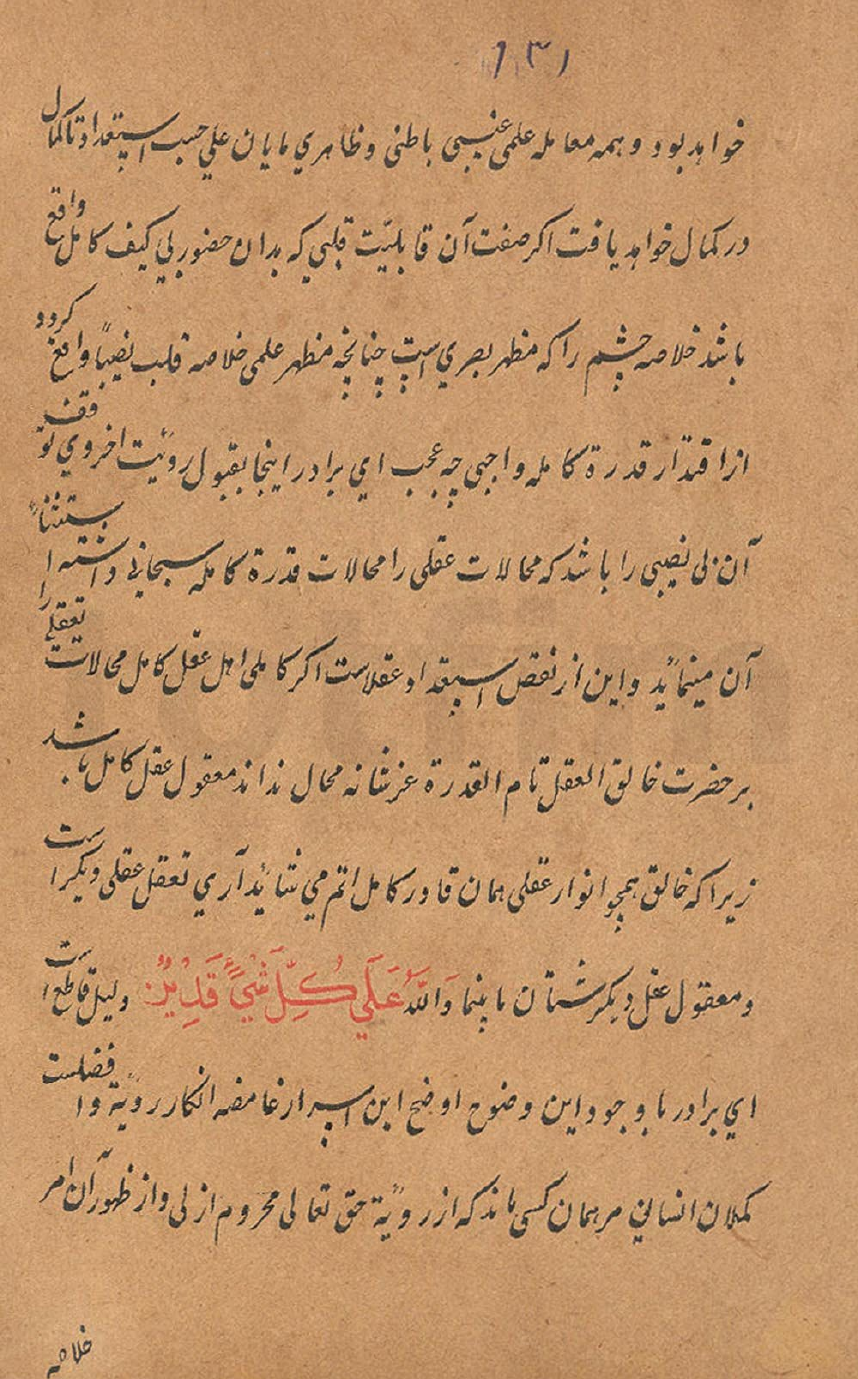 ۱۳۱
خواهد بود و همه معامله علمی غیبی باطنی و ظاهري مایان علي حسب استعداد تا کمال
در کمال خواهد یافت اکر صفت آن قابلیّت قلبي که بدان حضور بی کیف کامل واقع
باشد خلاصه چشم را که مظهر بصري است چنانچه مظهر علمی خلاصه قلب نصیباً واقع کردد
از اقتدار قدرة کامله واجبی چه عجب اي برادر اینجا بقبول روئیت اخروي توقف
آن بی نصیبی را باشد که محالات عقلی را محالات قدرة کامله سبحانی داشته استثناءً
آن مینماید و این از نقص استعداد عقلاست اکر کاملی اهل عقل کامل محالات تعقلی را
بر حضرت خالق العقل تام القدرة عز شانه محال نداند معقول عقل کامل باشد
زیرا که خالق همچو انوار عقلی همان قادر کامل اتم می شاید آري تعقل عقلی دیکر است
و معقول عقل دیکر شتان ما بینهما وَاللَّهُ عَلَي كُلِّ شَيْءٍ قَدِيرٌ دلیل قاطع است
اي برادر با وجود این وضوح اوضح این اسرار غامضه انکار رویة و افضلیت
کملان انسانی مر همان کسی باند که از رویة حق تعالی محروم ازلی و از ظهور آن امر
خلاصه